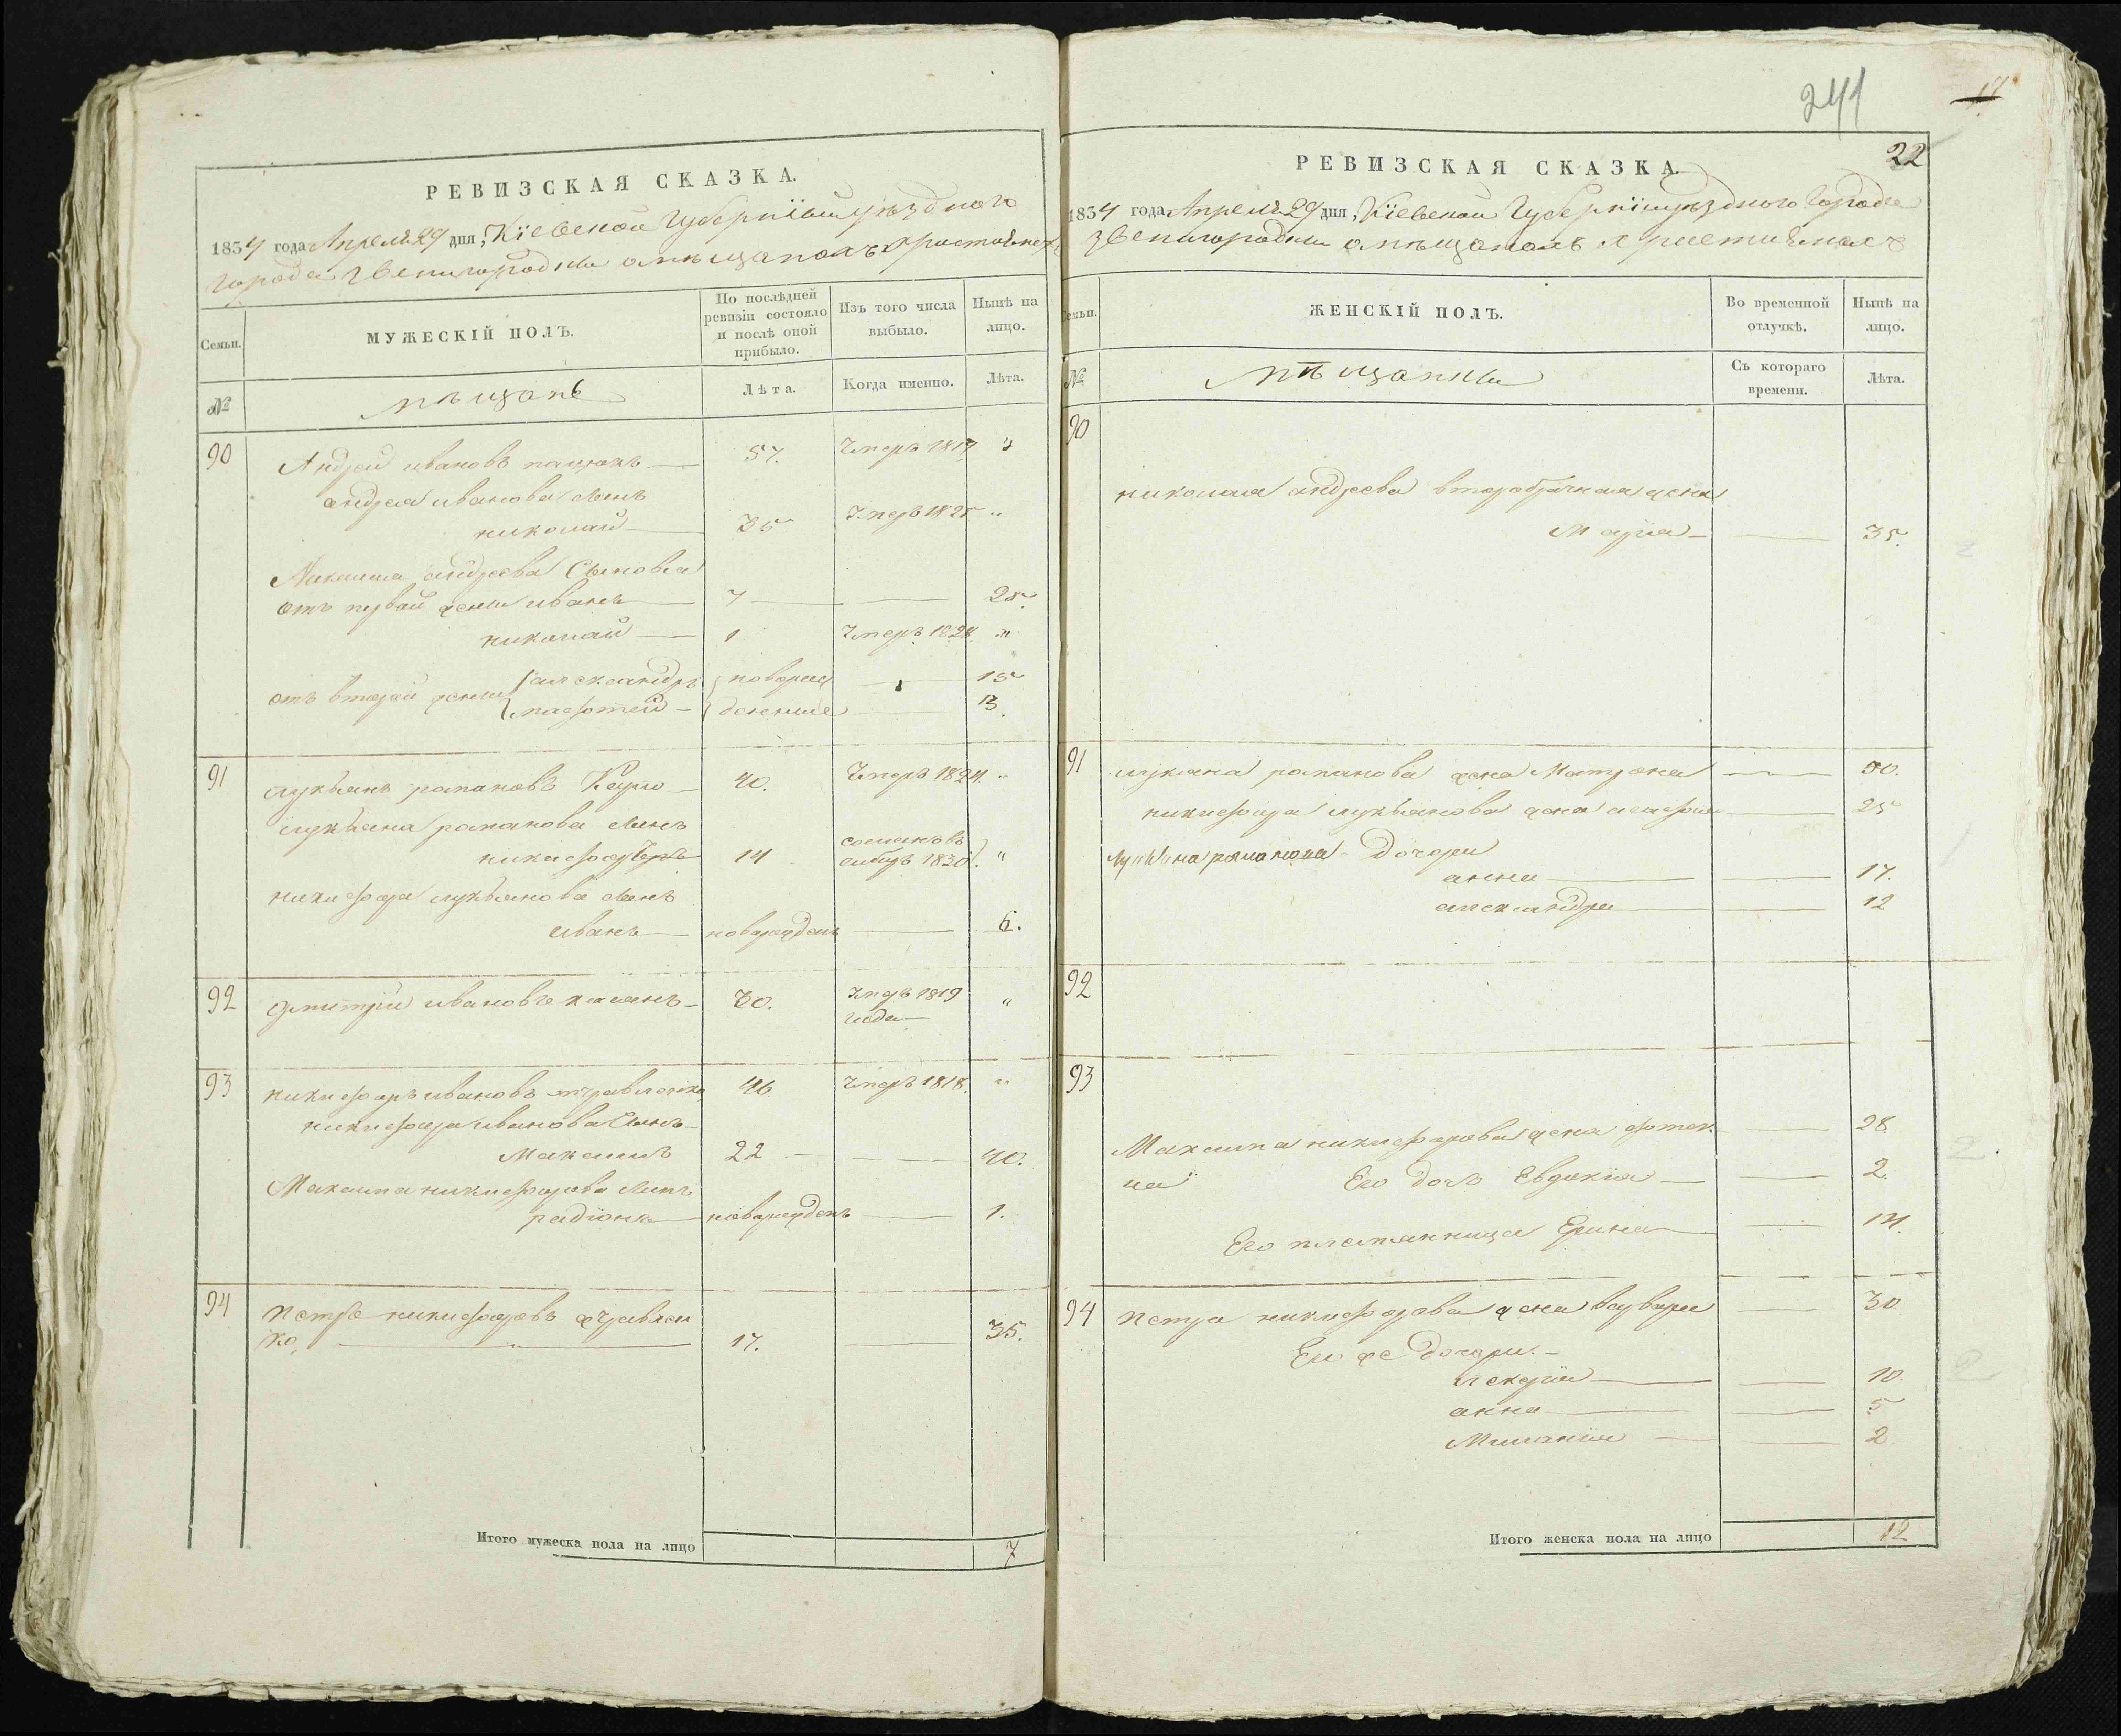 РЕВИЗСКАЯ СКАЗКА.
1834 года Апреля 29 дня, Кіевской Губерніи уѣзднаго
города Звенигородки о мѣщанахъ христіянахъ
Семьи.
МУЖЕСКІЙ ПОЛЪ.
По послѣдней ревизіи состояло и послѣ оной прибыло.
Изъ того числа выбыло.
Нынѣ на лицо.
№
мѣщанѣ
Лѣта.
Когда именно.
Лѣта.
90 Андрей ивановъ 57. Умеръ 1817 "
андрея иванова сынъ
николай 35 Умеръ 1825 "
Николая андреева Сыновья
отъ первой жены иванъ 7 25.
николай 1 Умеръ 1828 "
отъ второй жены александръ новорож 15
матфей денные 13.
91 лукьянъ романовъ 40. Умеръ 1824 "
лукьяна романова сынъ
никифоръ 14 сосланъ въ
сибирь 1830 "
никифора лукьянова сынъ
иванъ новорожденъ 6.
92 дмитрій ивановъ 30. Умеръ 1819 "
года
93 никифоръ ивановъ журавленко 46. Умеръ 1818. "
никифора иванова Сынъ
Максимъ 22 40.
Максима никифорова сынъ
радіонъ новорожденъ 1.
94 Петръ никифоровъ журавлен
ко, 17. 35.
Итого мужеска пола на лицо 7
241
17
22
РЕВИЗСКАЯ СКАЗКА.
1834 года Апреля 29 дня, Кіевской Губерніи уѣзднаго города
Звенигородки о мѣщанахъ христіянахъ
Семьи.
ЖЕНСКІЙ ПОЛЪ.
Во временной отлучкѣ.
Нынѣ на лицо.
№
мѣщанки
Съ котораго времени.
Лѣта.
90
николая андреева второбрачная жена
Марія 35.
91 лукяна романова жена Матрона 50.
никифора лукьянова жена 25
лукьяна романова дочери
анна 17.
александра 12
92
93
Максима никифорова жена 28
Его дочь Евдокія 2.
Его племянница Ерина 14.
94 Петра никифорова жена варвара 30
Его же дочери.
анна 5
Миланія 2
10.
Итого женска пола на лицо 12